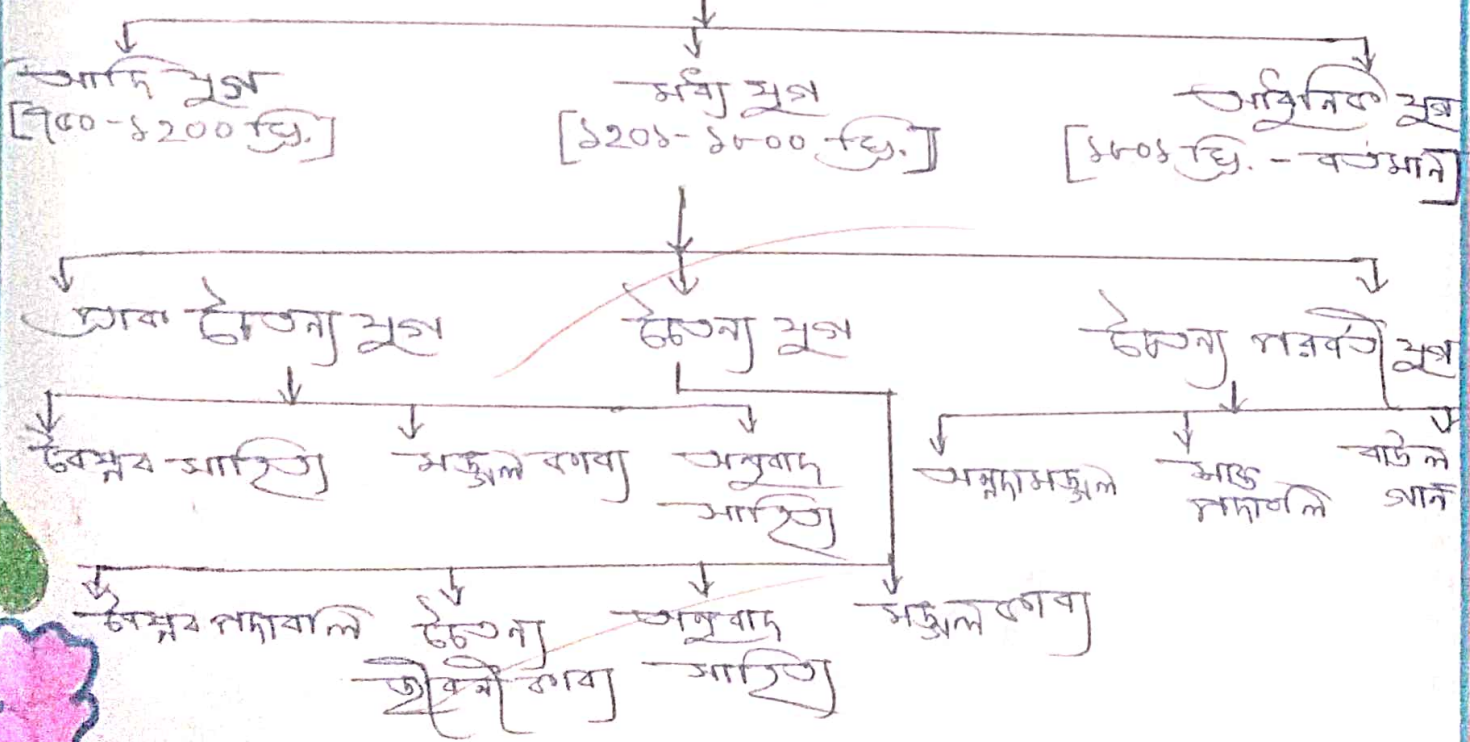 আদি যুগ
[৭৫০-১২০০ খ্রি.]
মধ্য যুগ
[১২০১-১৮০০ খ্রি.]
আধুনিক যুগ
[১৮০১ খ্রি. - বর্তমান]
প্রাক চৈতন্য যুগ
চৈতন্য যুগ
চৈতন্য পরবর্তী যুগ
বৈষ্ণব সাহিত্য
মঙ্গল কাব্য
অনুবাদ
সাহিত্য
অন্নদামঙ্গল
শাক্ত
পদাবলি
বাউল
গান
বৈষ্ণব পদাবলি
চৈতন্য
জীবনী কাব্য
অনুবাদ
সাহিত্য
মঙ্গল কাব্য